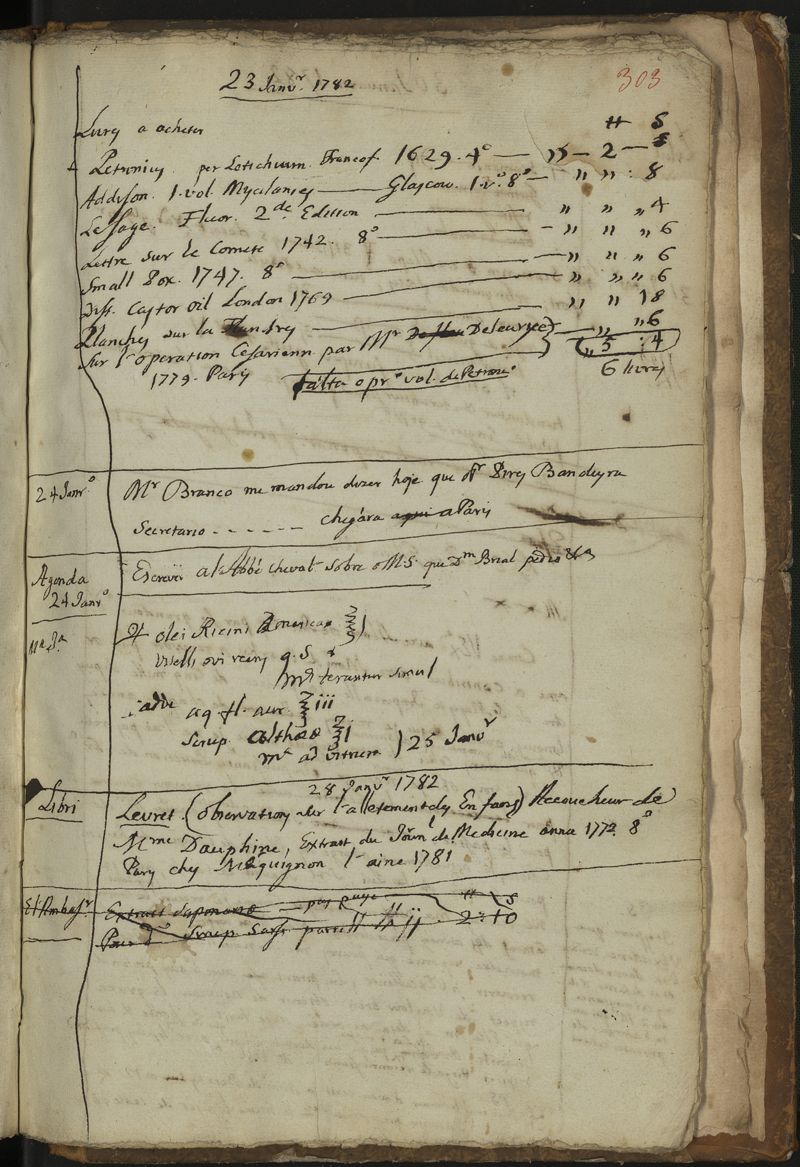 23 Janv.r 1782
303
Livrey a acheter ₶ S
Petronius per Lotichium Francof. 1629. 4° — 〃 — 2 — S
Addison. 1. vol. Mycilaney — Glascow. 1. v.° 8° — 〃 〃 : 8
Le Sage. Fluor. 2.de Edition — 〃 〃 〃 4
Lettre sur le Comete 1742. 8° — 〃 〃 〃 6
Small Pox. 1747. 8° — 〃 〃 〃 6
Diss. Castor oil London 1769 — 〃 〃 〃 6
Planchey sur la — 〃 〃 18
Sur l'operation Cesarienn par Mr Deleurye — 〃 〃 6
1779. Pary 〃 5 : 4
falta o pr.° vol. de Petron.° 6 livrey
24 Janr.° Mr Branco me mandou dizer hoje que Bandeyra
Secretario - - - - - - chegára aqui a Pariy
Agenda 24 Janr.° Escrevir al Abbé Cheval.r sobre o MS. que D.m Brial pedio
℞ olei Ricini Americae ℥j
Vitelli ovi recen q. S.
terantur simul
adde aq. fl. aur. ℥iii
Sirup. althaeae ℥j
ad vitrum ) 25 Janv.r
28 Janv.r 1782
Libri Levret (observationy sur l'alletement dey Enfans) Accoucheur de
Mme Dauphine, Extrait du Jôurn. de Medicine anna 1772. 8°
Pary chey Mequignon l'ainé 1781
El Ambas.r Extrait — pas paye ₶ S
Pour d.° Sirup Sarse parell ℔ jj 2 : 10